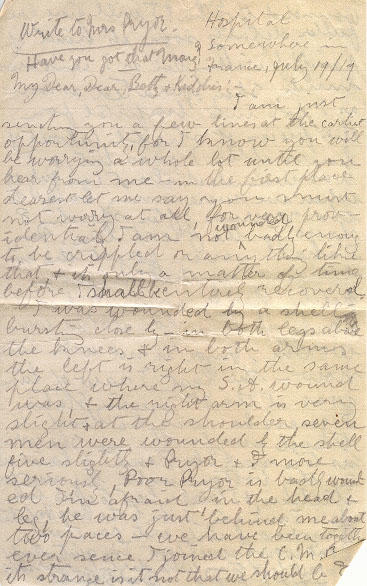 Write to Mrs Pryor.
Hospital
Somewhere in
Have you got that Mary?
France, July 19/17
My Dear, Dear, Betty & Kiddies:-
I am just
sending you a few lines at the earliest
opportunity, for I know you will
be worrying a whole lot until you
hear from me - in the first place
dearest let me say you must
not worry at all, for very prov-
identially I am not wounded badly enough
to be crippled or anything like
that & it's only a matter of time
before I shall be entirely recovered.
I was wounded by a shell
bursting close by - in both legs above
the knees, & in both arms,
the left is right in the same
place where my S.A. wound
was, & the right arm is very
slight, & at the shoulder, seven
men were wounded by the shell
five slightly & Pryor & I more
seriously. Poor Pryor is badly wound-
ed I'm afraid in the head &
leg, he was just behind me about
two paces - we have been together
ever since I joined the C.M.R.
its strange is it not that we should be